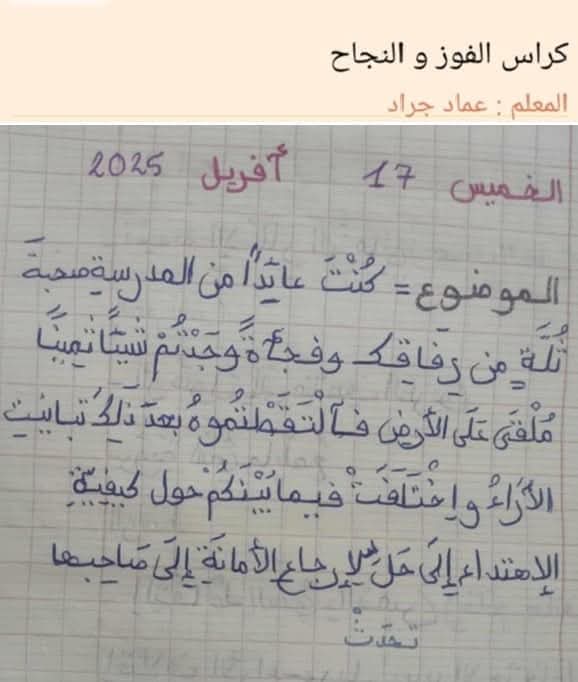 كراس الفوز و النجاح
المعلم : عماد جراد
الخميس 17 أفريل 2025
الموضوع = كُنْتَ عائِدًا من المدرسةِ صحبةَ
ثُلَّةٍ من رِفَاقِكَ وفجأةً وَجَدْتُمْ شَيْئًا ثَمِينًا
مُلْقَى عَلَى الأرضِ فَٱلْتَقَطْتُمُوهُ بعدَ ذَلِكَ تباينتِ
الأرَاءُ واِخْتَلَفَتْ فيما بَيْنَكُمْ حول كيفيّةِ
الإهتداءِ إلَى حَلٍّ لإرجاعِ الأمانَةِ إِلَى صَاحِبها
تحدّثْ